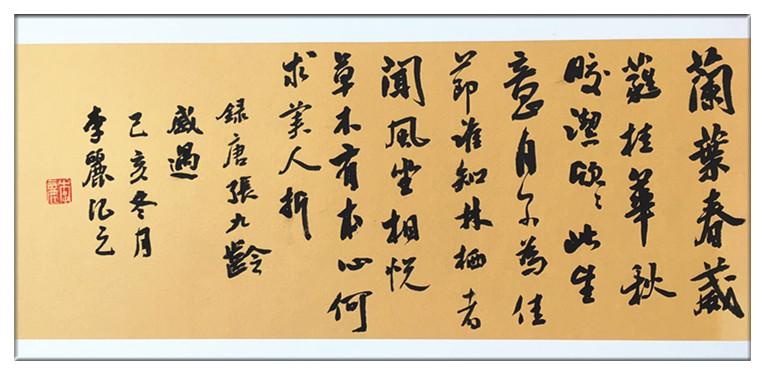 蘭葉春葳
蕤桂華秋
皎潔欣々此生
意自尔為佳
節誰知林栖者
聞風坐相悦
草木有本心何
求美人折
録唐張九齡
感遇
己亥冬月
李麗